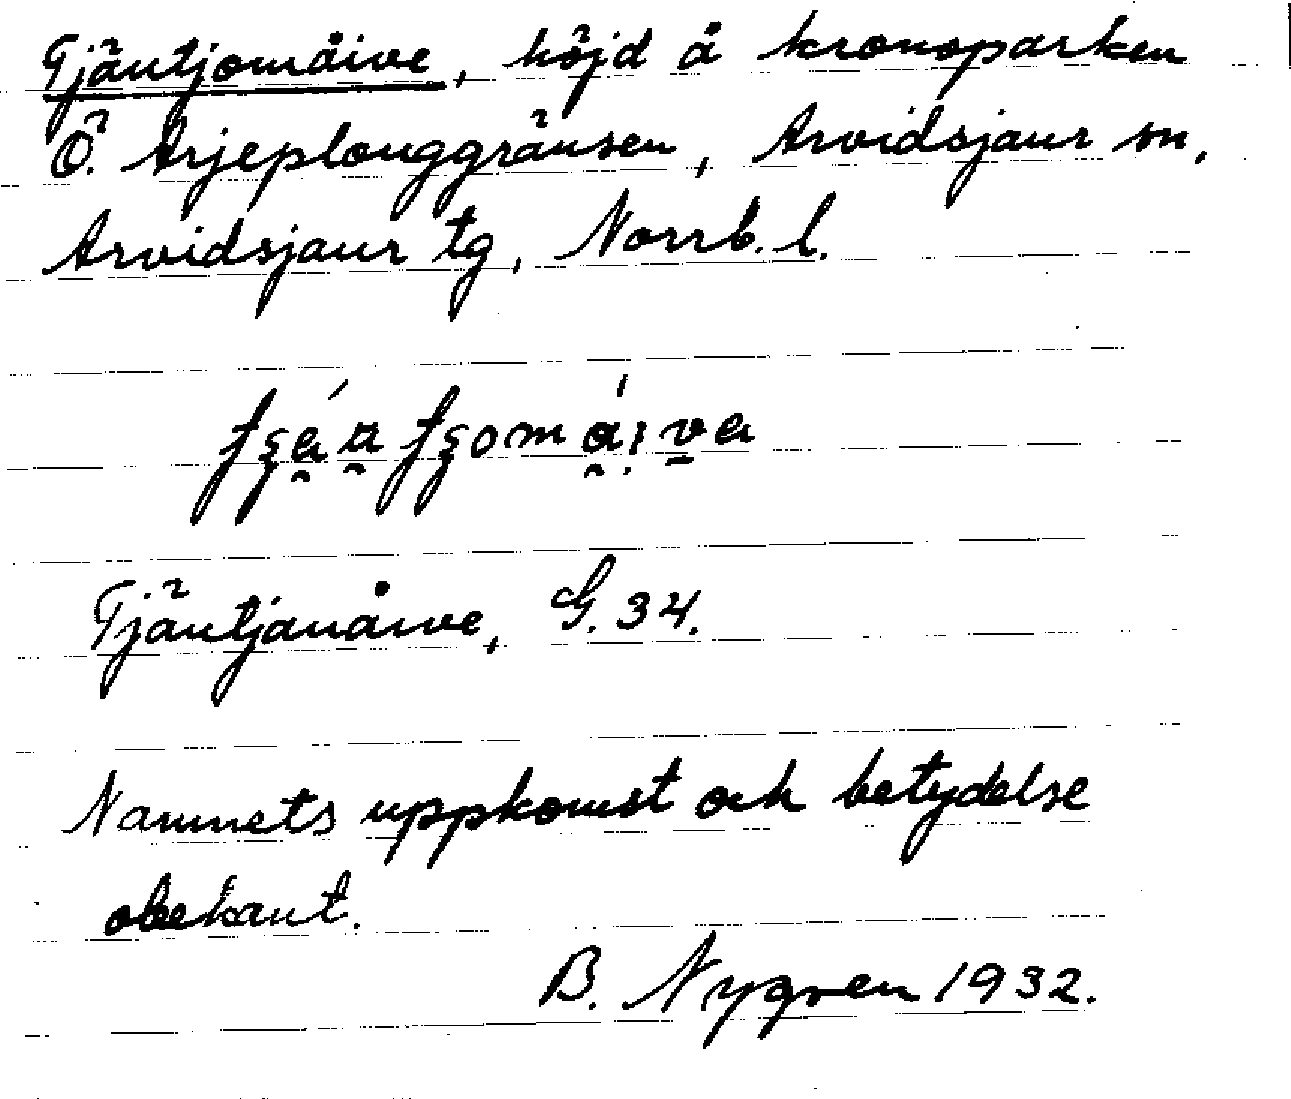 Tjäutjomåive, höjd å kronoparken
Ö. Arjeplouggränsen, Arvidsjaur sn,
Arvidsjaur tg, Norrb. l.
Tjäutjanåive, G. 34.
Namnets uppkomst och betydelse
obekant.
B. Nygren 1932.